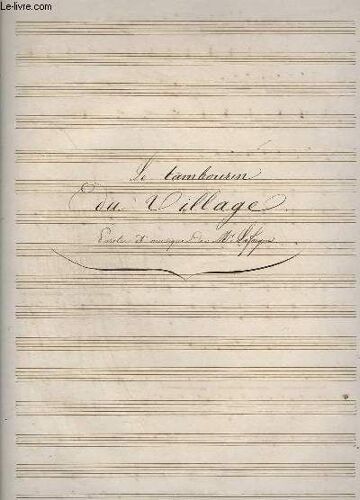 Le-livre.com
Le tambourin
du Village.
Paroles et musique de Mr